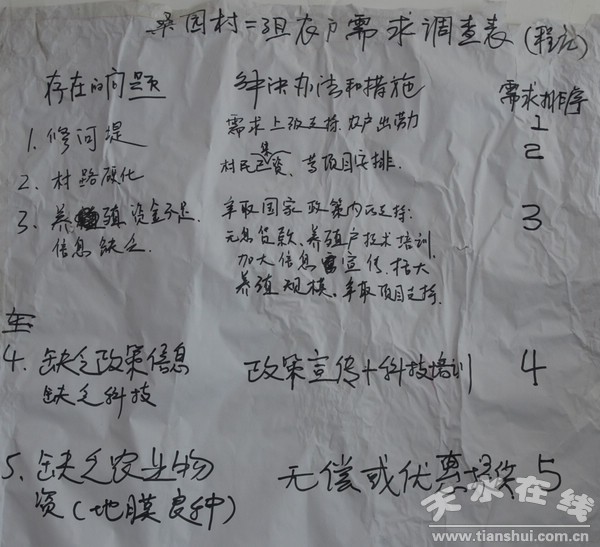 桑园村二组农户需求调查表(程记)
存在的问题 解决办法和措施 需求排序
1. 修河堤 需求上级支持. 农户出劳力 1
2. 村路硬化 村民集资、等项目安排. 2
3. 养殖资金不足. 争取国家政策内的支持: 3
信息缺乏. 无息贷款、养殖户技术培训.
加大信息宣传. 扩大
养殖规模. 争取项目支持.
4. 缺乏政策信息 政策宣传+科技培训 4
缺乏科技
5. 缺乏农业物 无偿或优惠提供 5
资(地膜 良种)
天水在线
www.tianshui.com.cn